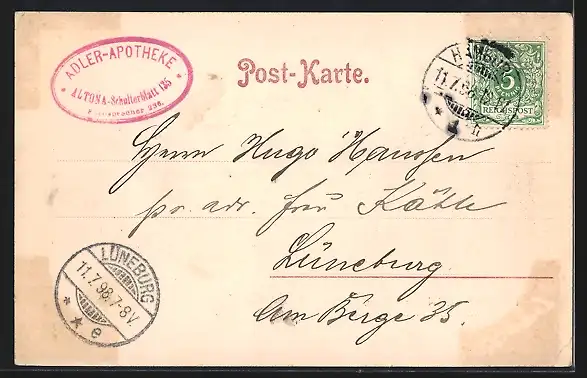 ADLER-APOTHEKE
ALTONA-Schulterblatt 135
Fernsprecher 236.
Post-Karte.
HAMBURG
11.7.98
5
REICHSPOST
Herrn Hugo Hanssen
pr. adr. Frau Käthe
Lüneburg
Am Berge 35.
LÜNEBURG
11.7.98.7-8V.
* * e